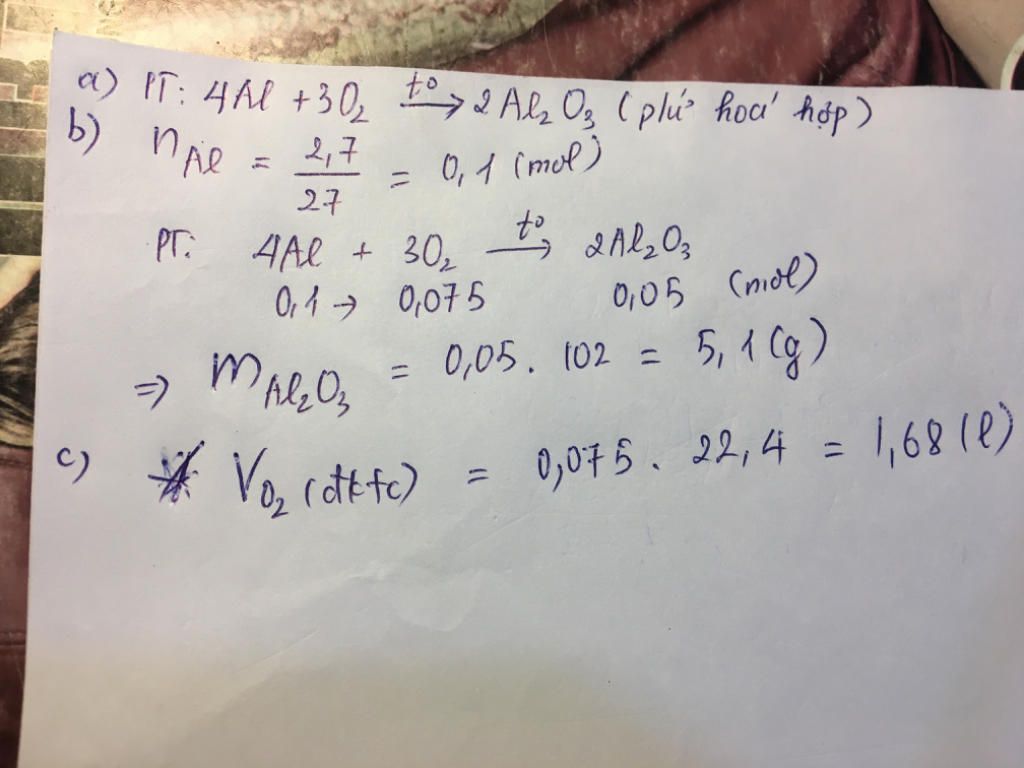 a) PT: 4Al + 3O₂ →(t°) 2Al₂O₃ (pứ hoá hợp)
b) nAl = 2,7/27 = 0,1 (mol)
PT: 4Al + 3O₂ →(t°) 2Al₂O₃
0,1 → 0,075 0,05 (mol)
⇒ mAl₂O₃ = 0,05 . 102 = 5,1 (g)
c) VO₂ (đktc) = 0,075 . 22,4 = 1,68 (l)